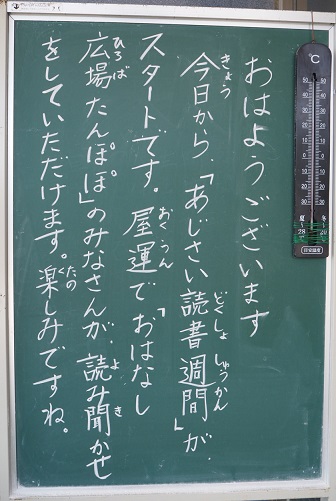 おはようございます
今日から、「あじさい読書週間」が、
スタートです。屋運で「おはなし
広場たんぽぽ」のみなさんが、読み聞かせ
をしていただけます。楽しみですね。
きょう
どくしょ しゅうかん
おく うん
ひろば
よ き
たの
℃
50 50
40 40
30 30
20 20
10 10
0 0
10 10
20 20
30 30
夏 冬
28 20